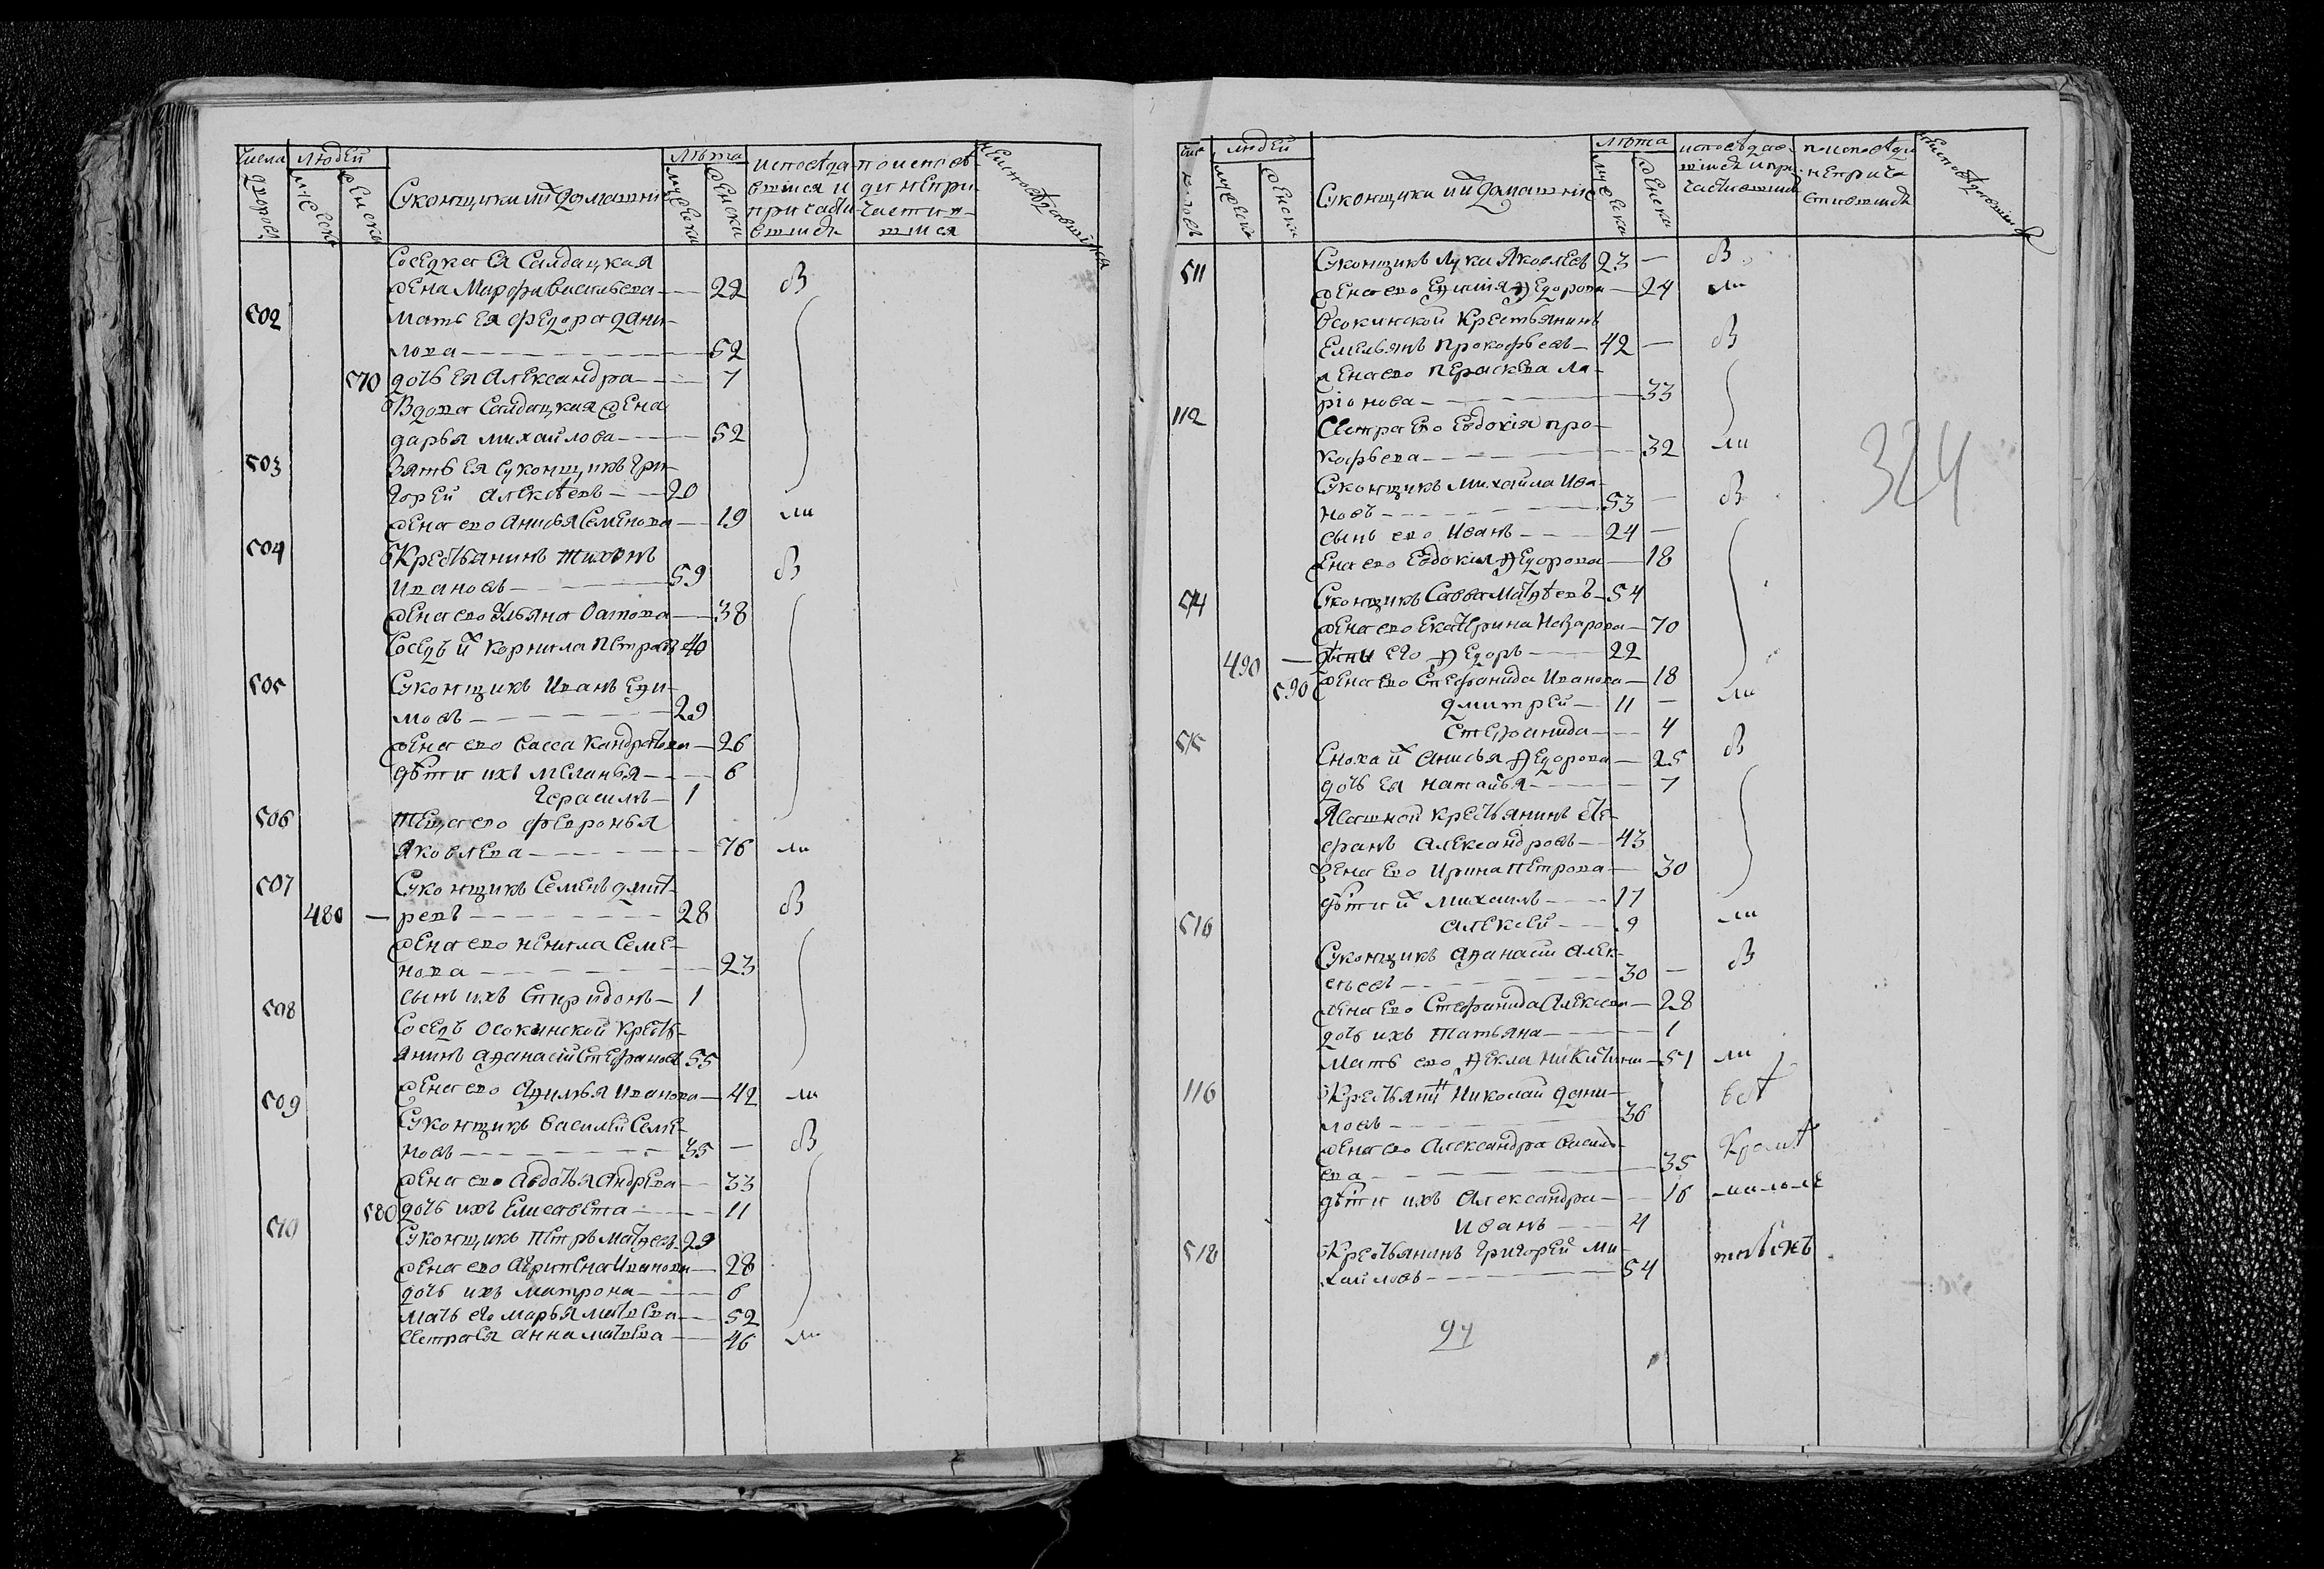 числа дворовъ
людей
мужеска
женска
Суконщики и ихъ домашнія
лѣта
мужеска
женска
исповѣдавшися и причастившися
по исповѣди непричастившися
неисповѣдавшися
Соседка ея Салдацкая
жена Марфа Васильева — 22 в
502 мать ея федора дани-
лова — 52
570 дочь ея Александра — 7
Вдова Салдацкая жена
дарья михайлова — 52
503 Зять ея суконщикъ Гри-
горей алексѣевъ — 20
жена ево Анисья Семенова — 19 ли
504 Крестьанинъ тихонъ
Ивановъ — 59 в
жена ево Ульяна — 38
Соседъ их Корнила Петровъ 40
505 Суконщикъ Иванъ Ефи-
мовъ — 29
жена ево Васса Кандратьева — 26
дѣти ихъ меланья — 6
Герасимъ — 1
506 теща ево февронья
Яковлева — 76 ли
507 Суконщикъ Семенъ дмит-
480 — ревъ — 28 в
жена ево ненила Семе-
нова — 23
сынъ ихъ Спиридонъ — 1
508 Соседъ Осокинской крестъ-
янинъ афанасій Стефановъ 55
509 жена ево Ефимья Иванова — 42 ли
Суконщикъ Василей Семе-
новъ — 35 — в
жена ево Авдотья Андрева — 33
580 дочь ихъ Елисавета — 11
510 Суконщикъ Петръ Матфеевъ 29
жена ево Агрипена Иванова — 28
дочь ихъ матрона — 6
мать его марья матвева — 52
Сестра ея анна матвева — 46 ли
людей
мужеска
женска
Суконщики и ихъ домашніе
лѣта
мужеска
женска
исповѣдав-
шися и при-
частившися
по исповѣди
неприча-
стившися
неисповѣдавшися
511 Суконщикъ Лука Яковлевъ 23 — в
жена ево Ефимія Федорова — 24 ли
Осокинской Крестьянинъ
Емельянъ Прокофьевъ — 42 — в
жена ево Параскева Ла-
ріонова — 33
112 Сестра Ево Евдокія про-
кофьева — 32 ли
Суконщикъ Михайла Ива-
новъ — 53 — в
сынъ ево Иванъ — 24 —
жена ево Евдокия Федорова — 18
514 Суконщикъ Савва Матфеевъ — 54
жена ево Екатерина Назарова — 70
490 — дѣти его Федоръ — 22
590 жена ево Стефанида Иванова — 18
дмитрей — 11 — ли
Стефанида — 4
515 Сноха их Анисья Федорова — 25 в
дочь ея наталья — 7
Ясашной крестьянинъ Сте-
фанъ Александровъ — 43
жена Ево Ирина Петрова — 30
дѣти их михаилъ — 17
516 алексей — 9 ли
Суконщикъ афанасій алек-
сѣевъ — 30 — в
жена Ево Стефанида Алексева — 28
дочь ихъ татьяна — 1
мать ево Фекла никитина — 51 ли
116 Крестьянинъ Николай дани-
ловъ — 36 всѣ
жена ево Александра Василь-
ева — 35 кромѣ
дѣти ихъ Александра — 16 малолѣ
Иванъ — 4
518 Крестьянинъ Григорей Ми-
хайловъ — 54
324
94